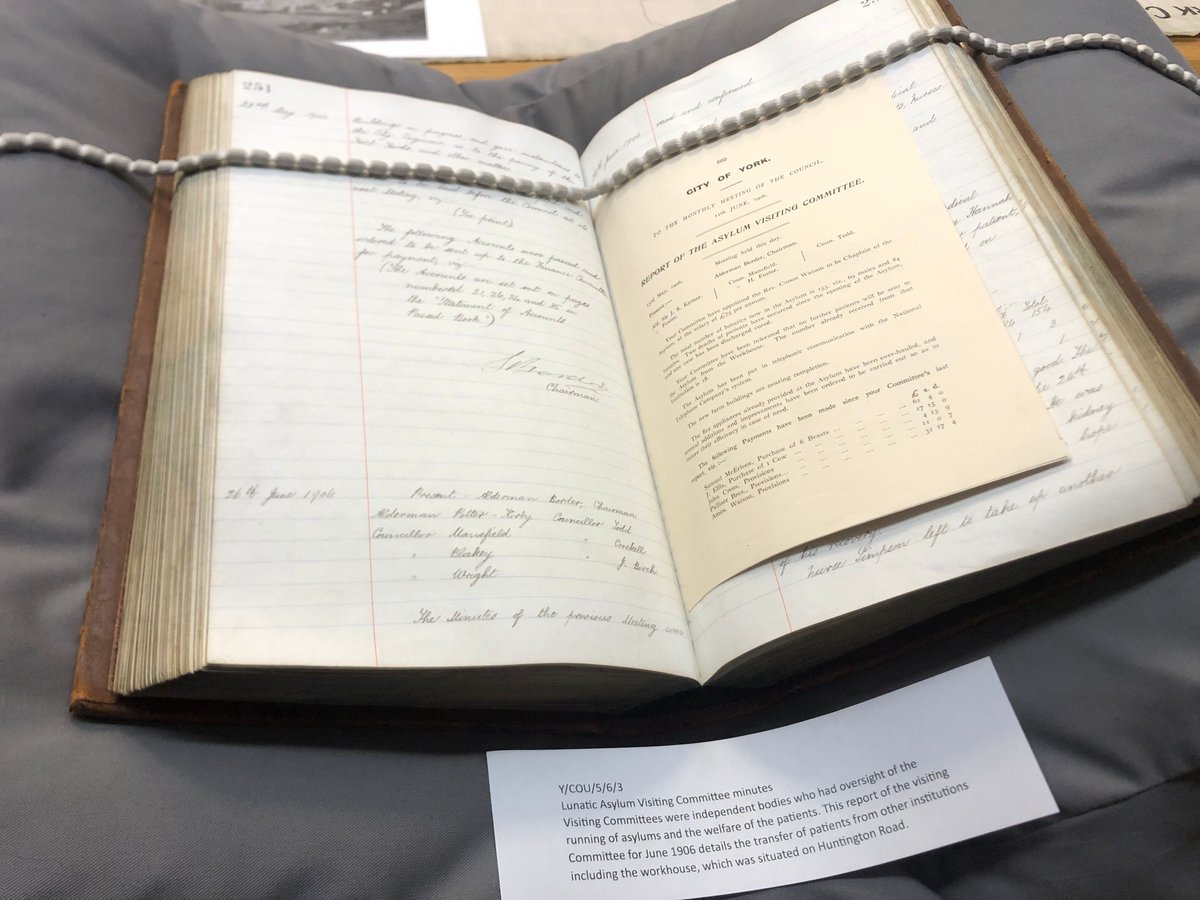 251
23rd May 1906
Buildings in progress and gave instructions to
the City Engineer as to the paving of the
Fold Yards and other matters
laid before the Council at its
next Meeting, viz:-
(See print)
The following Accounts were passed and
ordered to be sent up to the Finance Committee
for payment, viz:-
(The Accounts are set out on pages
numbered 21, 26, and in
the "Statement of Accounts
Passed Book")
Chairman
26th June 1906
Present - Alderman Border, Chairman
Alderman Potter-Kirby Councillor Todd
Councillor Mansfield " Crockell
" Blakey " J. Birch
" Wright
The Minutes of the previous Meeting were
June 1906
read and confirmed
and
Hannah
patient,
on
Total
154
good. The
26th
was
kidney
hope
of his recovery.
Nurse Simpson left to take up another
660
CITY OF YORK.
TO THE MONTHLY MEETING OF THE COUNCIL,
11th JUNE, 1906.
REPORT OF THE ASYLUM VISITING COMMITTEE.
Meeting held this day.
23rd May, 1906.
Present:—
Alderman Border, Chairman.
Ald. Sir J. S. Rymer.
" Foster.
Coun. Mansfield.
" H. Foster.
Coun. Todd.
Your Committee have appointed the Rev. Canon Watson to be Chaplain of the
Asylum, at the salary of £75 per annum.
The total number of lunatics now in the Asylum is 153, viz., 69 males and 84
females. Two deaths of patients have occurred since the opening of the Asylum,
and one case has been discharged cured.
Your Committee have been informed that no further patients will be sent to
the Asylum from the Workhouse. The number already received from that
Institution is 18.
The Asylum has been put in telephonic communication with the National
Telephone Company's system.
The new farm buildings are nearing completion.
The fire appliances already provided at the Asylum have been over-hauled, and
several additions and improvements have been ordered to be carried out so as to
insure their efficiency in case of need.
The following Payments have been made since your Committee's last
report, viz.:—
£ s. d.
Samuel McErleen, Purchase of 6 Beasts ... 61 4 0
J. Ellis, Purchase of 1 Cow ... 17 15 0
John Cross, Provisions ... 4 13 9
Palliser Bros., Provisions ... 11 0 7
Amos. Watson, Provisions ... 31 17 4
Y/COU/5/6/3
Lunatic Asylum Visiting Committee minutes
Visiting Committees were independent bodies who had oversight of the
running of asylums and the welfare of the patients. This report of the visiting
Committee for June 1906 details the transfer of patients from other institutions
including the workhouse, which was situated on Huntington Road.